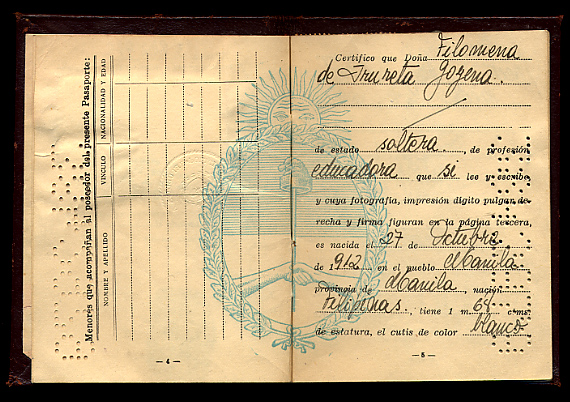 Menores que acompañan al poseedor del presente Pasaporte:
NOMBRE Y APELLIDO
VINCULO
NACIONALIDAD Y EDAD
— 4 —
Certifico que Doña Filomena
de Trureta Goyena
de estado soltera, de profesión
educadora que si lee y escribe
y cuya fotografía, impresión dígito pulgar de-
recha y firma figuran en la página tercera,
es nacida el 27 de Octubre
de 1912 en el pueblo Manila
provincia de Manila, nación
Filipinas, tiene 1 m. 64 cms.
de estatura, el cutis de color blanco
— 5 —